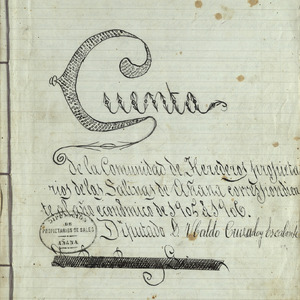 Cuenta
de la Comunidad de Herederos propieta
rios de las Salinas de Añana correspondien
te al año económico de 1905 á 1906.
Diputado D. Ubaldo
PROPIETARIOS DE SALES
AÑANA